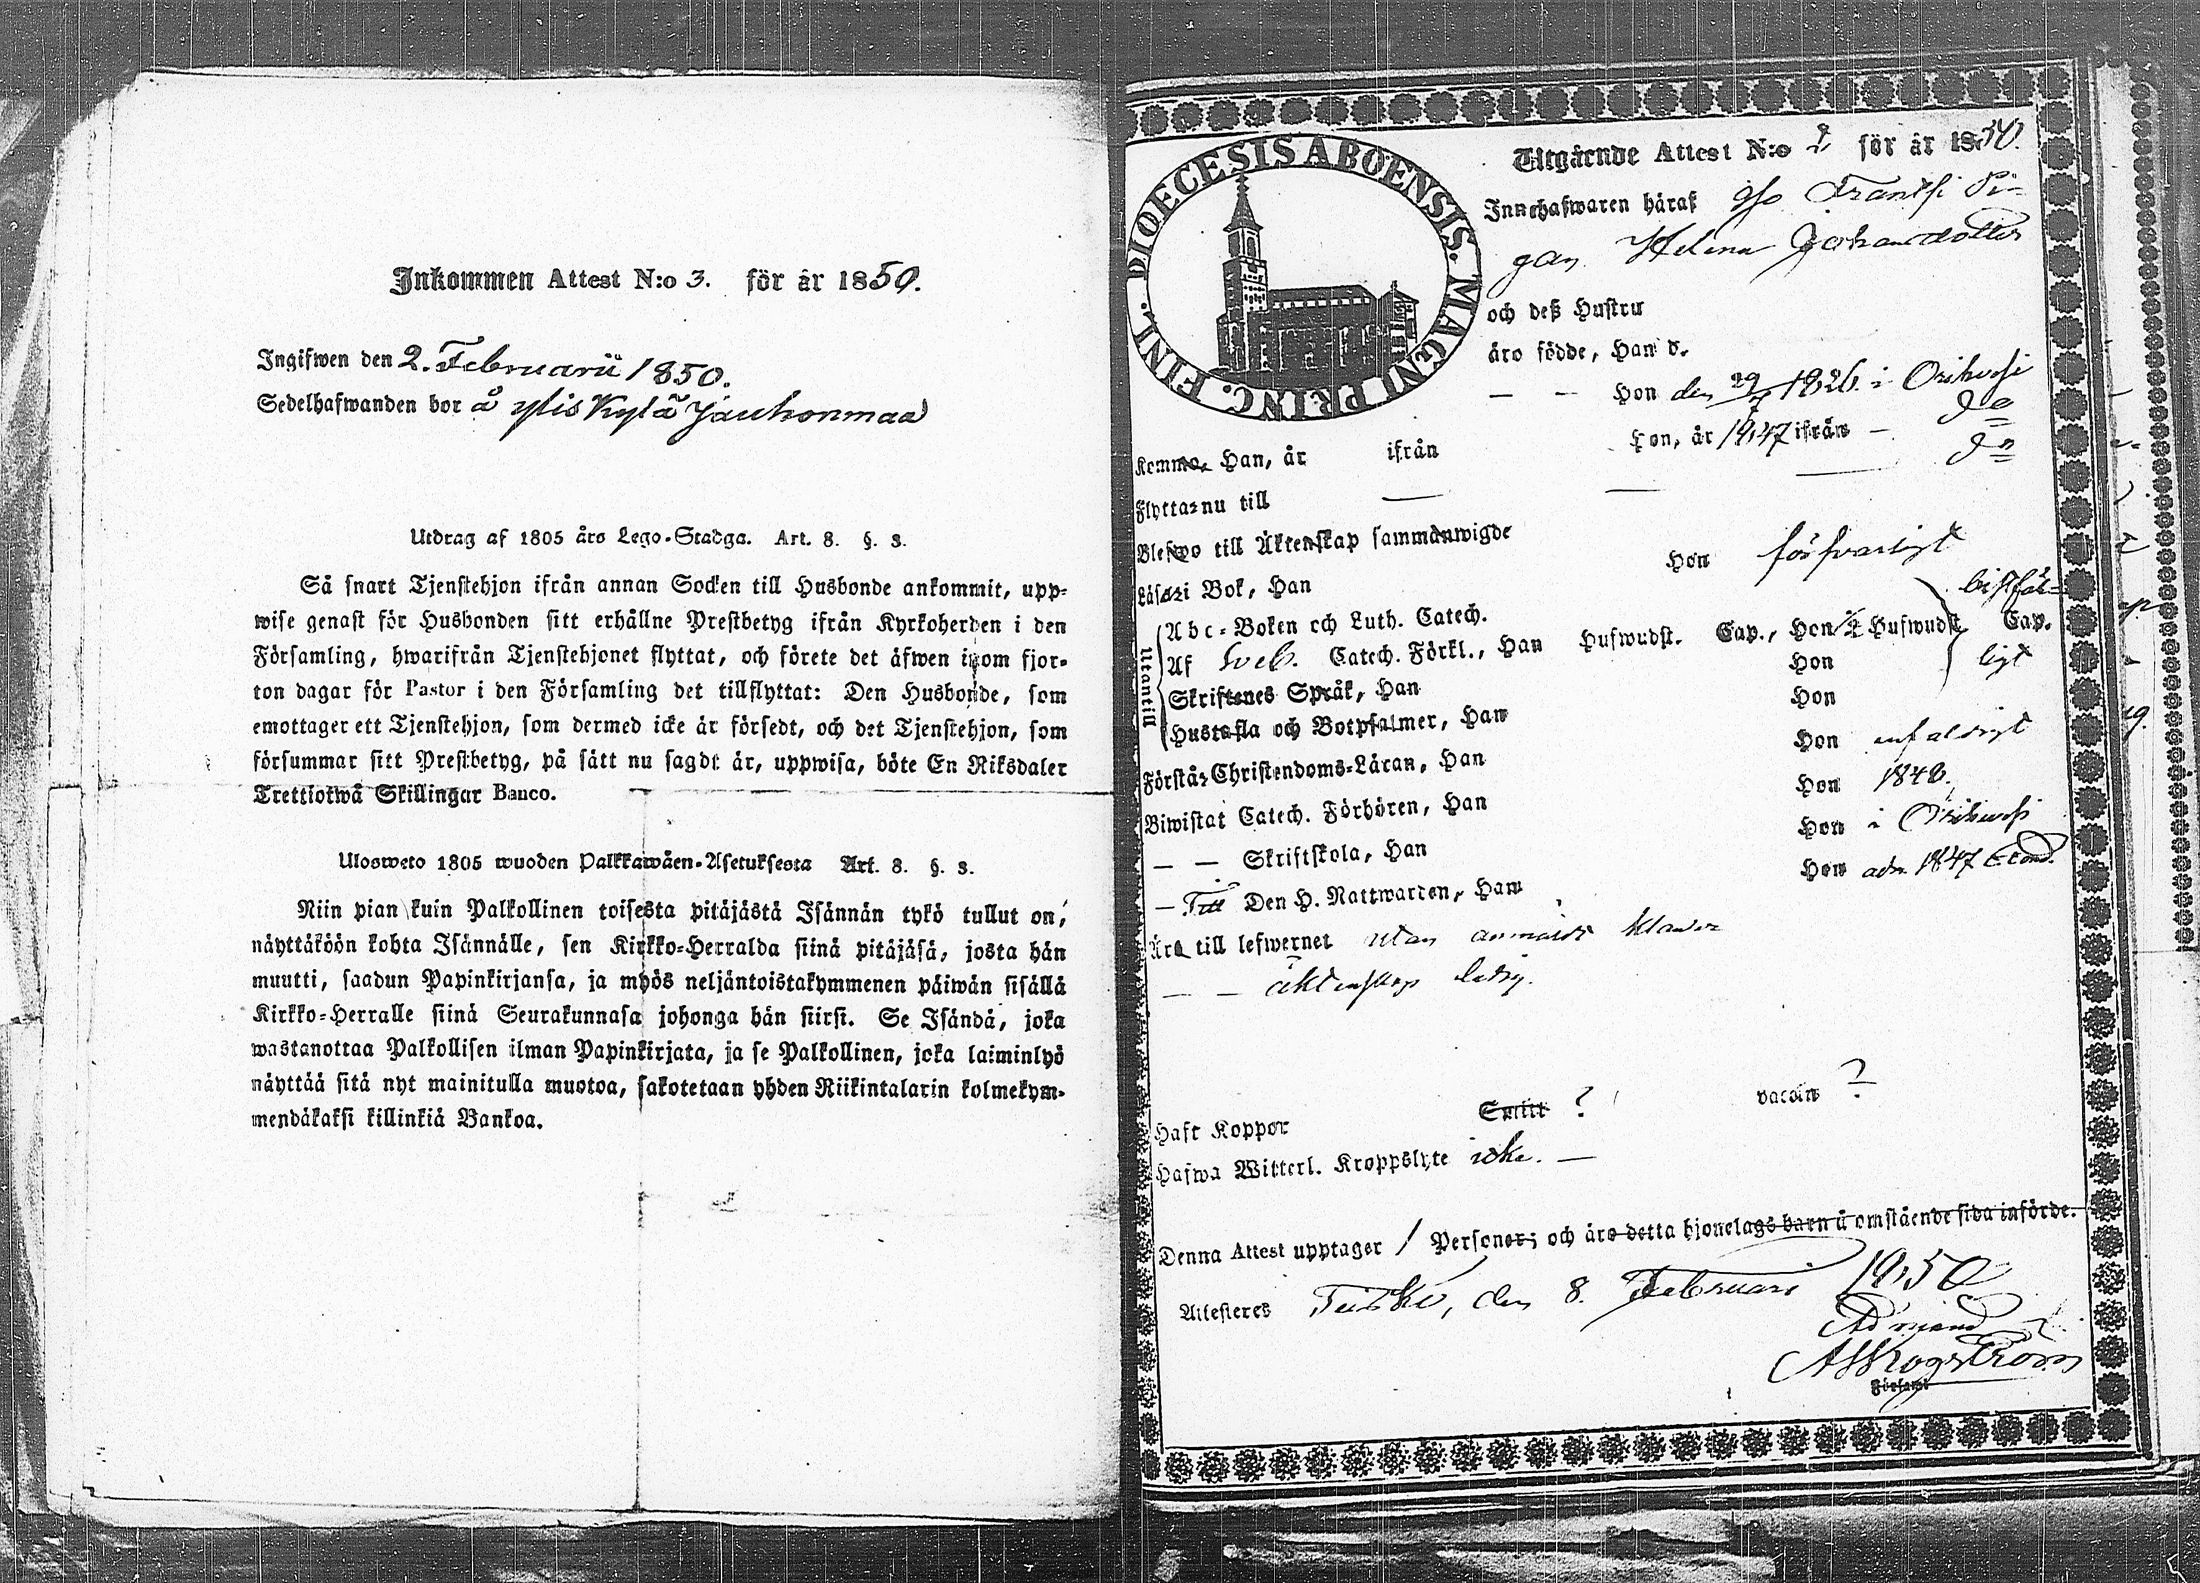 Inkommen Attest N:o 3. för år 1850.
Ingifwen den 2. Februarii 1850.
Sedelhafwanden bor å Ylis Kylä Jauhonmaa
Utdrag af 1805 års Lego-Stadga. Art. 8. §. 3.
Så snart Tjenstehjon ifrån annan Socken till Husbonde ankommit, upp-
wise genast för Husbonden sitt erhållne Prestbetyg ifrån Kyrkoherden i den
Församling, hwarifrån Tjenstehjonet flyttat, och förete det äfwen inom fjor-
ton dagar för Pastor i den Församling det tillflyttat: Den Husbonde, som
emottager ett Tjenstehjon, som dermed icke är försedt, och det Tjenstehjon, som
försummar sitt Prestbetyg, på sätt nu sagdt är, uppwisa, böte En Riksdaler
Trettiotwå Skillingar Banco.
Ulosweto 1805 wuoden Palkkawäen-Asetuksesta Art. 8. §. 3.
Niin pian kuin Palkollinen toisesta pitäjästä Isännän tykö tullut on,
näyttäköön kohta Isännälle, sen Kirkko-Herralda siinä pitäjäsä, josta hän
muutti, saadun Papinkirjansa, ja myös neljäntoistakymmenen päiwän sisällä
Kirkko-Herralle siinä Seurakunnasa johonga hän siirsi. Se Isändä, joka
wastanottaa Palkollisen ilman Papinkirjata, ja se Palkollinen, joka laiminlyö
näyttää sitä nyt mainitulla muotoa, sakotetaan yhden Riikintalarin kolmekym-
mendäkaksi killinkiä Bankoa.
DIOECESIS ABOENSIS. MAGNI PRINC. FINL.
Utgående Attest N:o 2 för år 1850.
Innehafwaren häraf Pi-
gan Helena Johansdotter
och deß Hustru
äro födde, Han d.
— — Hon den 29/7 1826. i Orihvesi
Komme, Han, år ifrån Hon, år 1847 ifrån — do
Flytta nu till — — — do
Blefwo till Äktenskap sammanwigde
Läsa i Bok, Han Hon försvarligt
Utantill
Abc-Boken och Luth. Catech.
Af Sveb. Catech. Förkl., Han Hufwudst. Cap., Hon Hufwudst Cap.
Skriftenes Språk, Han Hon
Hustafla och Botpsalmer, Han Hon
Förstår Christendoms-Läran, Han Hon enfaldigt
Biwistat Catech. Förhören, Han Hon 1848.
— — Skriftskola, Han Hon i Orihvesi
— Till Den H. Nattwarden, Han Hon adm. 1847
Äro till lefwernet utan anmärkt klander
— — äktenskap ledig.
Haft Koppor ? vaccin ?
Hafwa Witterl. Kroppslyte icke. —
Denna Attest upptager 1 Personer; och äro detta hjonelags barn å omstående sida införde.
Attesteres Teisko, den 8. Februari 1850